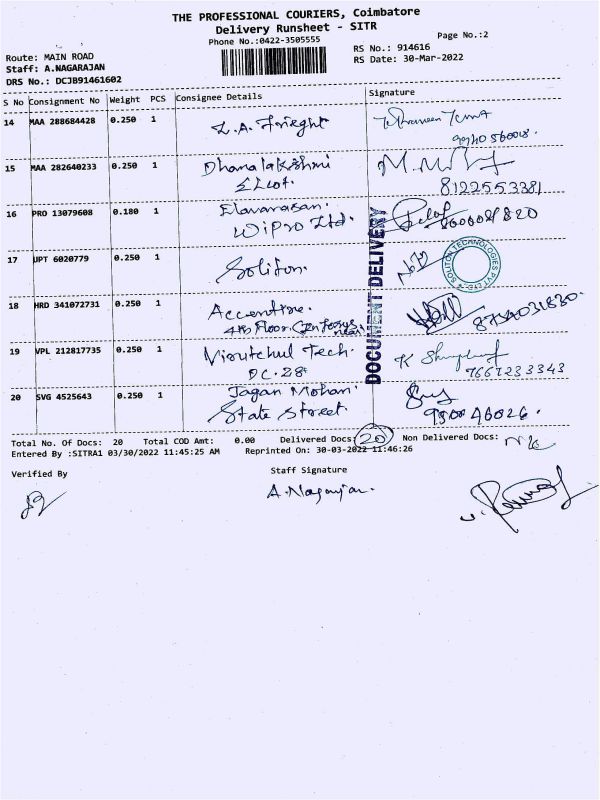 THE PROFESSIONAL COURIERS, Coimbatore
Delivery Runsheet - SITR
Phone No.:0422-3505555
Page No.:2
Route: MAIN ROAD
RS No.: 914616
Staff: A.NAGARAJAN
RS Date: 30-Mar-2022
DRS No.: DCJB91461602
S No Consignment No Weight PCS Consignee Details Signature
14 MAA 288684428 0.250 1
15 MAA 282640233 0.250 1 Dhanalakshmi
8122553381
16 PRO 13079608 0.180 1 Elavarasan.
Wipro Ltd.
17 UPT 6020779 0.250 1 Soliton.
SOLITON TECHNOLOGIES PVT LTD
18 HRD 341072731 0.250 1
4th Floor.
DOCUMENT DELIVERY
19 VPL 212817735 0.250 1 Tech.
DC.28
7667233343
20 SVG 4525643 0.250 1 Jagan Mohan.
State Street.
Total No. Of Docs: 20 Total COD Amt: 0.00 Delivered Docs: 20 Non Delivered Docs:
Entered By :SITRA1 03/30/2022 11:45:25 AM Reprinted On: 30-03-2022 11:46:26
Verified By
Staff Signature
A.Nagarajan.